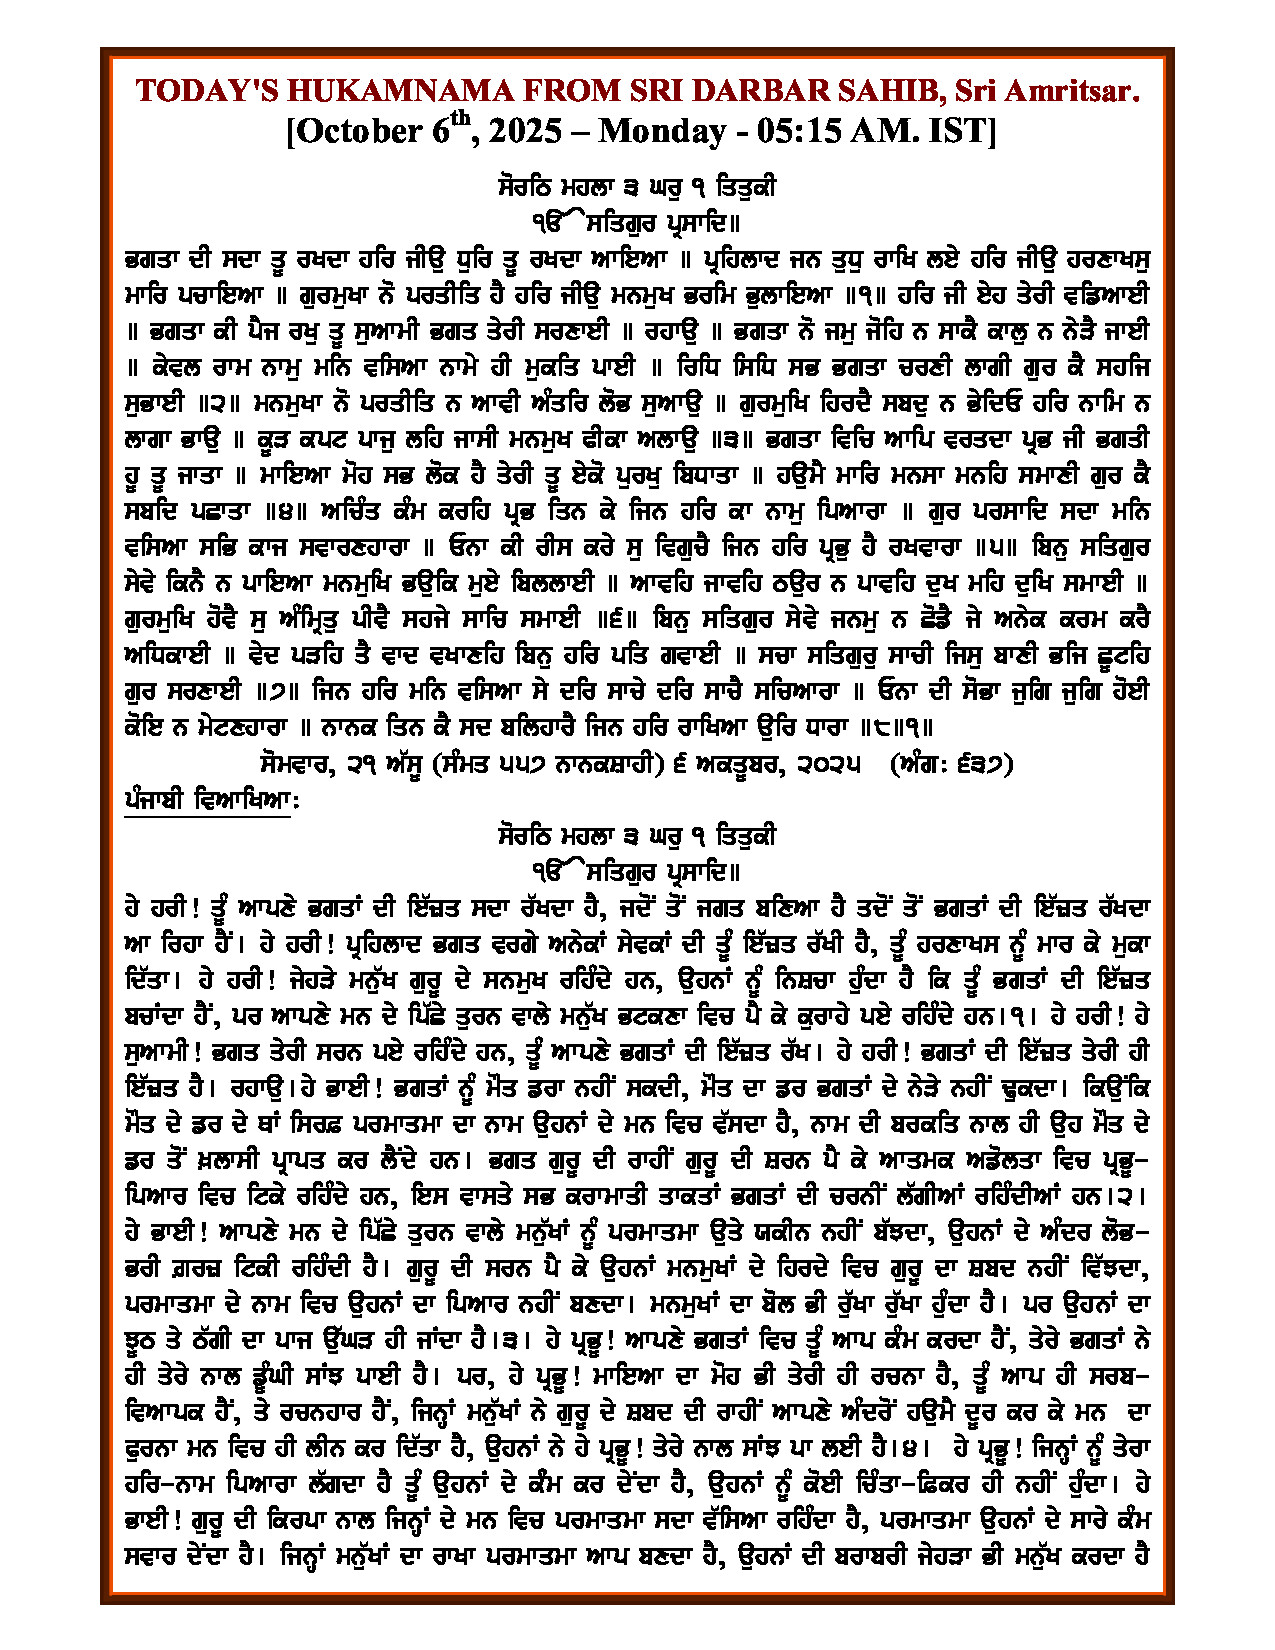 TODAY'S HUKAMNAMA FROM SRI DARBAR SAHIB, Sri Amritsar.
[October 6th, 2025 – Monday - 05:15 AM. IST]
ਸੋਰਠਿ ਮਹਲਾ ੩ ਘਰੁ ੧ ਤਿਤੁਕੀ
ੴ ਸਤਿਗੁਰ ਪ੍ਰਸਾਦਿ॥
ਭਗਤਾ ਦੀ ਸਦਾ ਤੂ ਰਖਦਾ ਹਰਿ ਜੀਉ ਧੁਰਿ ਤੂ ਰਖਦਾ ਆਇਆ ॥ ਪ੍ਰਹਿਲਾਦ ਜਨ ਤੁਧੁ ਰਾਖਿ ਲਏ ਹਰਿ ਜੀਉ ਹਰਣਾਖਸੁ
ਮਾਰਿ ਪਚਾਇਆ ॥ ਗੁਰਮੁਖਾ ਨੋ ਪਰਤੀਤਿ ਹੈ ਹਰਿ ਜੀਉ ਮਨਮੁਖ ਭਰਮਿ ਭੁਲਾਇਆ ॥੧॥ ਹਰਿ ਜੀ ਏਹ ਤੇਰੀ ਵਡਿਆਈ
॥ ਭਗਤਾ ਕੀ ਪੈਜ ਰਖੁ ਤੂ ਸੁਆਮੀ ਭਗਤ ਤੇਰੀ ਸਰਣਾਈ ॥ ਰਹਾਉ ॥ ਭਗਤਾ ਨੋ ਜਮੁ ਜੋਹਿ ਨ ਸਾਕੈ ਕਾਲੁ ਨ ਨੇੜੈ ਜਾਈ
॥ ਕੇਵਲ ਰਾਮ ਨਾਮੁ ਮਨਿ ਵਸਿਆ ਨਾਮੇ ਹੀ ਮੁਕਤਿ ਪਾਈ ॥ ਰਿਧਿ ਸਿਧਿ ਸਭ ਭਗਤਾ ਚਰਣੀ ਲਾਗੀ ਗੁਰ ਕੈ ਸਹਜਿ
ਸੁਭਾਈ ॥੨॥ ਮਨਮੁਖਾ ਨੋ ਪਰਤੀਤਿ ਨ ਆਵੀ ਅੰਤਰਿ ਲੋਭ ਸੁਆਉ ॥ ਗੁਰਮੁਖਿ ਹਿਰਦੈ ਸਬਦੁ ਨ ਭੇਦਿਓ ਹਰਿ ਨਾਮਿ ਨ
ਲਾਗਾ ਭਾਉ ॥ ਕੂੜ ਕਪਟ ਪਾਜੁ ਲਹਿ ਜਾਸੀ ਮਨਮੁਖ ਫੀਕਾ ਅਲਾਉ ॥੩॥ ਭਗਤਾ ਵਿਚਿ ਆਪਿ ਵਰਤਦਾ ਪ੍ਰਭ ਜੀ ਭਗਤੀ
ਹੂ ਤੂ ਜਾਤਾ ॥ ਮਾਇਆ ਮੋਹ ਸਭ ਲੋਕ ਹੈ ਤੇਰੀ ਤੂ ਏਕੋ ਪੁਰਖੁ ਬਿਧਾਤਾ ॥ ਹਉਮੈ ਮਾਰਿ ਮਨਸਾ ਮਨਹਿ ਸਮਾਣੀ ਗੁਰ ਕੈ
ਸਬਦਿ ਪਛਾਤਾ ॥੪॥ ਅਚਿੰਤ ਕੰਮ ਕਰਹਿ ਪ੍ਰਭ ਤਿਨ ਕੇ ਜਿਨ ਹਰਿ ਕਾ ਨਾਮੁ ਪਿਆਰਾ ॥ ਗੁਰ ਪਰਸਾਦਿ ਸਦਾ ਮਨਿ
ਵਸਿਆ ਸਭਿ ਕਾਜ ਸਵਾਰਣਹਾਰਾ ॥ ਓਨਾ ਕੀ ਰੀਸ ਕਰੇ ਸੁ ਵਿਗੁਚੈ ਜਿਨ ਹਰਿ ਪ੍ਰਭੁ ਹੈ ਰਖਵਾਰਾ ॥੫॥ ਬਿਨੁ ਸਤਿਗੁਰ
ਸੇਵੇ ਕਿਨੈ ਨ ਪਾਇਆ ਮਨਮੁਖਿ ਭਉਕਿ ਮੁਏ ਬਿਲਲਾਈ ॥ ਆਵਹਿ ਜਾਵਹਿ ਠਉਰ ਨ ਪਾਵਹਿ ਦੁਖ ਮਹਿ ਦੁਖਿ ਸਮਾਈ ॥
ਗੁਰਮੁਖਿ ਹੋਵੈ ਸੁ ਅੰਮ੍ਰਿਤੁ ਪੀਵੈ ਸਹਜੇ ਸਾਚਿ ਸਮਾਈ ॥੬॥ ਬਿਨੁ ਸਤਿਗੁਰ ਸੇਵੇ ਜਨਮੁ ਨ ਛੋਡੈ ਜੇ ਅਨੇਕ ਕਰਮ ਕਰੈ
ਅਧਿਕਾਈ ॥ ਵੇਦ ਪੜਹਿ ਤੈ ਵਾਦ ਵਖਾਣਹਿ ਬਿਨੁ ਹਰਿ ਪਤਿ ਗਵਾਈ ॥ ਸਚਾ ਸਤਿਗੁਰੁ ਸਾਚੀ ਜਿਸੁ ਬਾਣੀ ਭਜਿ ਛੂਟਹਿ
ਗੁਰ ਸਰਣਾਈ ॥੭॥ ਜਿਨ ਹਰਿ ਮਨਿ ਵਸਿਆ ਸੇ ਦਰਿ ਸਾਚੇ ਦਰਿ ਸਾਚੈ ਸਚਿਆਰਾ ॥ ਓਨਾ ਦੀ ਸੋਭਾ ਜੁਗਿ ਜੁਗਿ ਹੋਈ
ਕੋਇ ਨ ਮੇਟਣਹਾਰਾ ॥ ਨਾਨਕ ਤਿਨ ਕੈ ਸਦ ਬਲਿਹਾਰੈ ਜਿਨ ਹਰਿ ਰਾਖਿਆ ਉਰਿ ਧਾਰਾ ॥੮॥੧॥
ਸੋਮਵਾਰ, ੨੧ ਅੱਸੂ (ਸੰਮਤ ੫੫੭ ਨਾਨਕਸ਼ਾਹੀ) ੬ ਅਕਤੂਬਰ, ੨੦੨੫ (ਅੰਗ: ੬੩੭)
ਪੰਜਾਬੀ ਵਿਆਖਿਆ:
ਸੋਰਠਿ ਮਹਲਾ ੩ ਘਰੁ ੧ ਤਿਤੁਕੀ
ੴ ਸਤਿਗੁਰ ਪ੍ਰਸਾਦਿ॥
ਹੇ ਹਰੀ! ਤੂੰ ਆਪਣੇ ਭਗਤਾਂ ਦੀ ਇੱਜ਼ਤ ਸਦਾ ਰੱਖਦਾ ਹੈ, ਜਦੋਂ ਤੋਂ ਜਗਤ ਬਣਿਆ ਹੈ ਤਦੋਂ ਤੋਂ ਭਗਤਾਂ ਦੀ ਇੱਜ਼ਤ ਰੱਖਦਾ
ਆ ਰਿਹਾ ਹੈਂ। ਹੇ ਹਰੀ! ਪ੍ਰਹਿਲਾਦ ਭਗਤ ਵਰਗੇ ਅਨੇਕਾਂ ਸੇਵਕਾਂ ਦੀ ਤੂੰ ਇੱਜ਼ਤ ਰੱਖੀ ਹੈ, ਤੂੰ ਹਰਣਾਖਸ ਨੂੰ ਮਾਰ ਕੇ ਮੁਕਾ
ਦਿੱਤਾ। ਹੇ ਹਰੀ! ਜੇਹੜੇ ਮਨੁੱਖ ਗੁਰੂ ਦੇ ਸਨਮੁਖ ਰਹਿੰਦੇ ਹਨ, ਉਹਨਾਂ ਨੂੰ ਨਿਸ਼ਚਾ ਹੁੰਦਾ ਹੈ ਕਿ ਤੂੰ ਭਗਤਾਂ ਦੀ ਇੱਜ਼ਤ
ਬਚਾਂਦਾ ਹੈਂ, ਪਰ ਆਪਣੇ ਮਨ ਦੇ ਪਿੱਛੇ ਤੁਰਨ ਵਾਲੇ ਮਨੁੱਖ ਭਟਕਣਾ ਵਿਚ ਪੈ ਕੇ ਕੁਰਾਹੇ ਪਏ ਰਹਿੰਦੇ ਹਨ।੧। ਹੇ ਹਰੀ! ਹੇ
ਸੁਆਮੀ! ਭਗਤ ਤੇਰੀ ਸਰਨ ਪਏ ਰਹਿੰਦੇ ਹਨ, ਤੂੰ ਆਪਣੇ ਭਗਤਾਂ ਦੀ ਇੱਜ਼ਤ ਰੱਖ। ਹੇ ਹਰੀ! ਭਗਤਾਂ ਦੀ ਇੱਜ਼ਤ ਤੇਰੀ ਹੀ
ਇੱਜ਼ਤ ਹੈ। ਰਹਾਉ।ਹੇ ਭਾਈ! ਭਗਤਾਂ ਨੂੰ ਮੌਤ ਡਰਾ ਨਹੀਂ ਸਕਦੀ, ਮੌਤ ਦਾ ਡਰ ਭਗਤਾਂ ਦੇ ਨੇੜੇ ਨਹੀਂ ਢੁਕਦਾ। ਕਿਉਂਕਿ
ਮੌਤ ਦੇ ਡਰ ਦੇ ਥਾਂ ਸਿਰਫ਼ ਪਰਮਾਤਮਾ ਦਾ ਨਾਮ ਉਹਨਾਂ ਦੇ ਮਨ ਵਿਚ ਵੱਸਦਾ ਹੈ, ਨਾਮ ਦੀ ਬਰਕਤਿ ਨਾਲ ਹੀ ਉਹ ਮੌਤ ਦੇ
ਡਰ ਤੋਂ ਖ਼ਲਾਸੀ ਪ੍ਰਾਪਤ ਕਰ ਲੈਂਦੇ ਹਨ। ਭਗਤ ਗੁਰੂ ਦੀ ਰਾਹੀਂ ਗੁਰੂ ਦੀ ਸ਼ਰਨ ਪੈ ਕੇ ਆਤਮਕ ਅਡੋਲਤਾ ਵਿਚ ਪ੍ਰਭੂ-
ਪਿਆਰ ਵਿਚ ਟਿਕੇ ਰਹਿੰਦੇ ਹਨ, ਇਸ ਵਾਸਤੇ ਸਭ ਕਰਾਮਾਤੀ ਤਾਕਤਾਂ ਭਗਤਾਂ ਦੀ ਚਰਨੀਂ ਲੱਗੀਆਂ ਰਹਿੰਦੀਆਂ ਹਨ।੨।
ਹੇ ਭਾਈ! ਆਪਣੇ ਮਨ ਦੇ ਪਿੱਛੇ ਤੁਰਨ ਵਾਲੇ ਮਨੁੱਖਾਂ ਨੂੰ ਪਰਮਾਤਮਾ ਉਤੇ ਯਕੀਨ ਨਹੀਂ ਬੱਝਦਾ, ਉਹਨਾਂ ਦੇ ਅੰਦਰ ਲੋਭ-
ਭਰੀ ਗ਼ਰਜ਼ ਟਿਕੀ ਰਹਿੰਦੀ ਹੈ। ਗੁਰੂ ਦੀ ਸਰਨ ਪੈ ਕੇ ਉਹਨਾਂ ਮਨਮੁਖਾਂ ਦੇ ਹਿਰਦੇ ਵਿਚ ਗੁਰੂ ਦਾ ਸ਼ਬਦ ਨਹੀਂ ਵਿੱਝਦਾ,
ਪਰਮਾਤਮਾ ਦੇ ਨਾਮ ਵਿਚ ਉਹਨਾਂ ਦਾ ਪਿਆਰ ਨਹੀਂ ਬਣਦਾ। ਮਨਮੁਖਾਂ ਦਾ ਬੋਲ ਭੀ ਰੁੱਖਾ ਰੁੱਖਾ ਹੁੰਦਾ ਹੈ। ਪਰ ਉਹਨਾਂ ਦਾ
ਝੂਠ ਤੇ ਠੱਗੀ ਦਾ ਪਾਜ ਉੱਘੜ ਹੀ ਜਾਂਦਾ ਹੈ।੩। ਹੇ ਪ੍ਰਭੂ! ਆਪਣੇ ਭਗਤਾਂ ਵਿਚ ਤੂੰ ਆਪ ਕੰਮ ਕਰਦਾ ਹੈਂ, ਤੇਰੇ ਭਗਤਾਂ ਨੇ
ਹੀ ਤੇਰੇ ਨਾਲ ਡੂੰਘੀ ਸਾਂਝ ਪਾਈ ਹੈ। ਪਰ, ਹੇ ਪ੍ਰਭੂ! ਮਾਇਆ ਦਾ ਮੋਹ ਭੀ ਤੇਰੀ ਹੀ ਰਚਨਾ ਹੈ, ਤੂੰ ਆਪ ਹੀ ਸਰਬ-
ਵਿਆਪਕ ਹੈਂ, ਤੇ ਰਚਨਹਾਰ ਹੈਂ, ਜਿਨ੍ਹਾਂ ਮਨੁੱਖਾਂ ਨੇ ਗੁਰੂ ਦੇ ਸ਼ਬਦ ਦੀ ਰਾਹੀਂ ਆਪਣੇ ਅੰਦਰੋਂ ਹਉਮੈ ਦੂਰ ਕਰ ਕੇ ਮਨ ਦਾ
ਫੁਰਨਾ ਮਨ ਵਿਚ ਹੀ ਲੀਨ ਕਰ ਦਿੱਤਾ ਹੈ, ਉਹਨਾਂ ਨੇ ਹੇ ਪ੍ਰਭੂ! ਤੇਰੇ ਨਾਲ ਸਾਂਝ ਪਾ ਲਈ ਹੈ।੪। ਹੇ ਪ੍ਰਭੂ! ਜਿਨ੍ਹਾਂ ਨੂੰ ਤੇਰਾ
ਹਰਿ-ਨਾਮ ਪਿਆਰਾ ਲੱਗਦਾ ਹੈ ਤੂੰ ਉਹਨਾਂ ਦੇ ਕੰਮ ਕਰ ਦੇਂਦਾ ਹੈ, ਉਹਨਾਂ ਨੂੰ ਕੋਈ ਚਿੰਤਾ-ਫ਼ਿਕਰ ਹੀ ਨਹੀਂ ਹੁੰਦਾ। ਹੇ
ਭਾਈ! ਗੁਰੂ ਦੀ ਕਿਰਪਾ ਨਾਲ ਜਿਨ੍ਹਾਂ ਦੇ ਮਨ ਵਿਚ ਪਰਮਾਤਮਾ ਸਦਾ ਵੱਸਿਆ ਰਹਿੰਦਾ ਹੈ, ਪਰਮਾਤਮਾ ਉਹਨਾਂ ਦੇ ਸਾਰੇ ਕੰਮ
ਸਵਾਰ ਦੇਂਦਾ ਹੈ। ਜਿਨ੍ਹਾਂ ਮਨੁੱਖਾਂ ਦਾ ਰਾਖਾ ਪਰਮਾਤਮਾ ਆਪ ਬਣਦਾ ਹੈ, ਉਹਨਾਂ ਦੀ ਬਰਾਬਰੀ ਜੇਹੜਾ ਭੀ ਮਨੁੱਖ ਕਰਦਾ ਹੈ